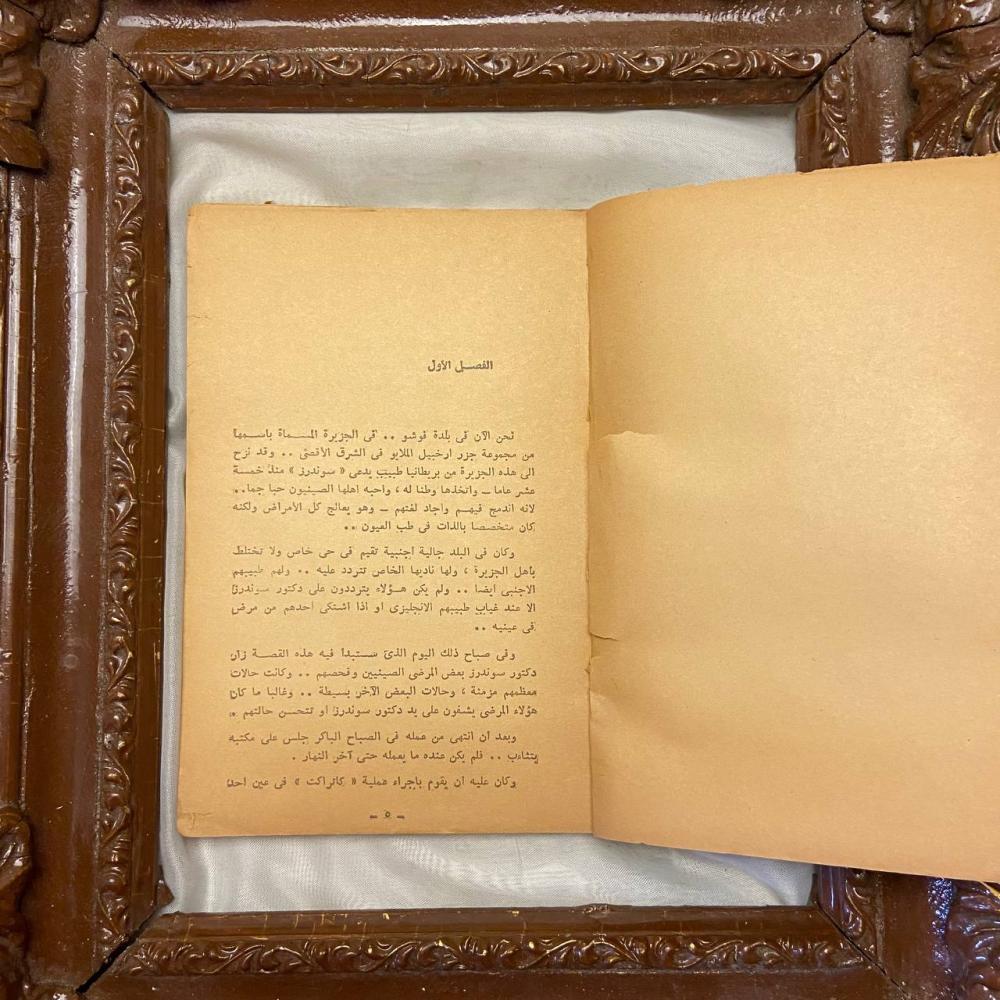 الفصل الأول
نحن الآن فى بلدة فوشو .. فى الجزيرة المسماة باسمها
من مجموعة جزر ارخبيل الملايو فى الشرق الأقصى .. وقد نزح
الى هذه الجزيرة من بريطانيا طبيب يدعى « سوندرز » منذ خمسة
عشر عاما ــ واتخذها وطنا له ، واحبه اهلها الصينيون حبا جما..
لانه اندمج فيهم واجاد لغتهم ــ وهو يعالج كل الأمراض ولكنه
كان متخصصا بالذات فى طب العيون ..
وكان فى البلد جالية اجنبية تقيم فى حى خاص ولا تختلط
بأهل الجزيرة ، ولها ناديها الخاص تتردد عليه .. ولهم طبيبهم
الاجنبى ايضا .. ولم يكن هؤلاء يترددون على دكتور سوندرز
الا عند غياب طبيبهم الانجليزى او اذا اشتكى احدهم من مرض
فى عينيه ..
وفى صباح ذلك اليوم الذى ستبدأ فيه هذه القصة زار
دكتور سوندرز بعض المرضى الصينيين وفحصهم .. وكانت حالات
معظمهم مزمنة ، وحالات البعض الآخر بسيطة .. وغالبا ما كان
هؤلاء المرضى يشفون على يد دكتور سوندرز او تتحسن حالتهم .
وبعد ان انتهى من عمله فى الصباح الباكر جلس على مكتبه
يتثاءب .. فلم يكن عنده ما يعمله حتى آخر النهار .
وكان عليه ان يقوم باجراء عملية « كاتراكت » فى عين احد
ــ ٥ ــ